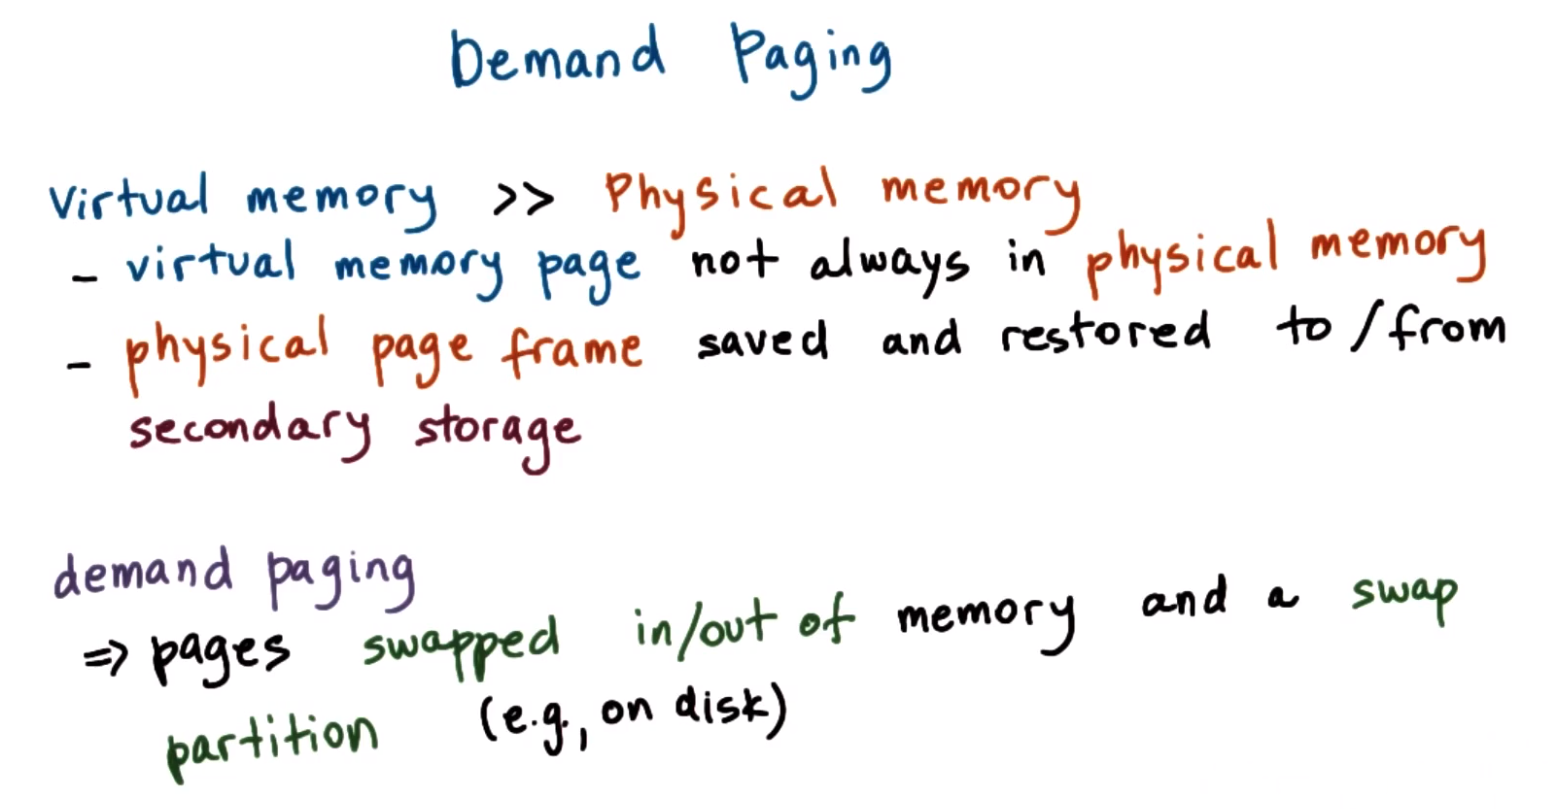 Demand Paging
Virtual memory >> Physical memory
- virtual memory page not always in physical memory
- physical page frame saved and restored to/from
secondary storage
demand paging
=> pages swapped in/out of memory and a swap
partition (e.g., on disk)